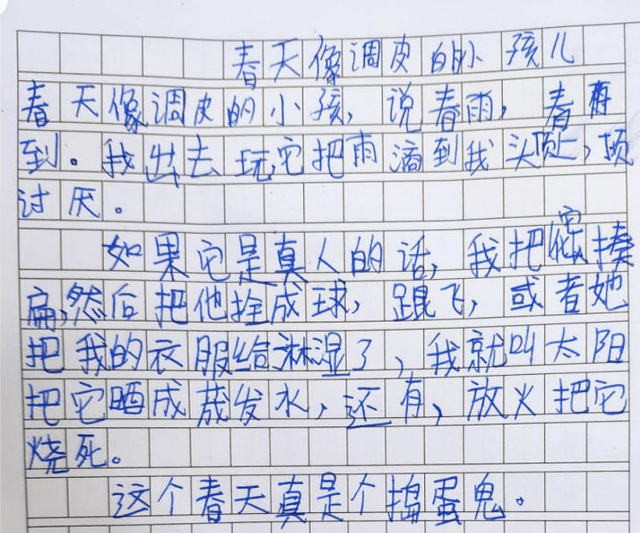 春天像调皮的小孩儿
春天像调皮的小孩，说春雨，春雨
到。我出去玩它把雨滴到我头顶上，顶
讨厌。
如果它是真人的话，我把它揍
扁，然后把他拴成球，踢飞，或者她
把我的衣服给淋湿了，我就叫太阳
把它晒成蒸发水，还有，放火把它
烧死。
这个春天真是个捣蛋鬼。